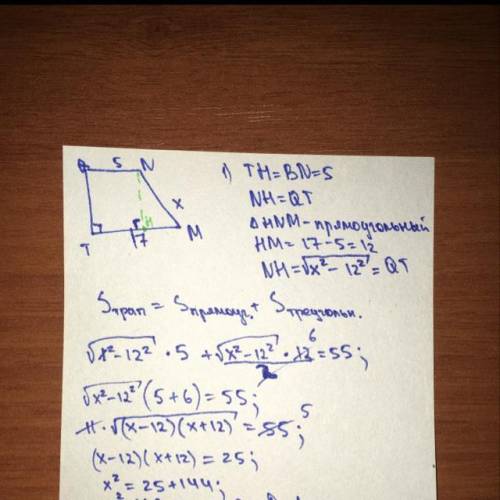 5 N
x
T H M
17
1) TH=BN=5
NH=QT
ΔHNM-прямоугольный
HM= 17-5=12
NH=√x²-12² = QT
Sтрап = Sпрямоуг. + Sтреугольн.
√x²-12² · 5 + √x²-12² · 12 6 / 2 =55;
√x²-12² (5+6)=55;
11 · √(x-12)(x+12) = 55; 5
(x-12)(x+12)=25;
x²=25+144;